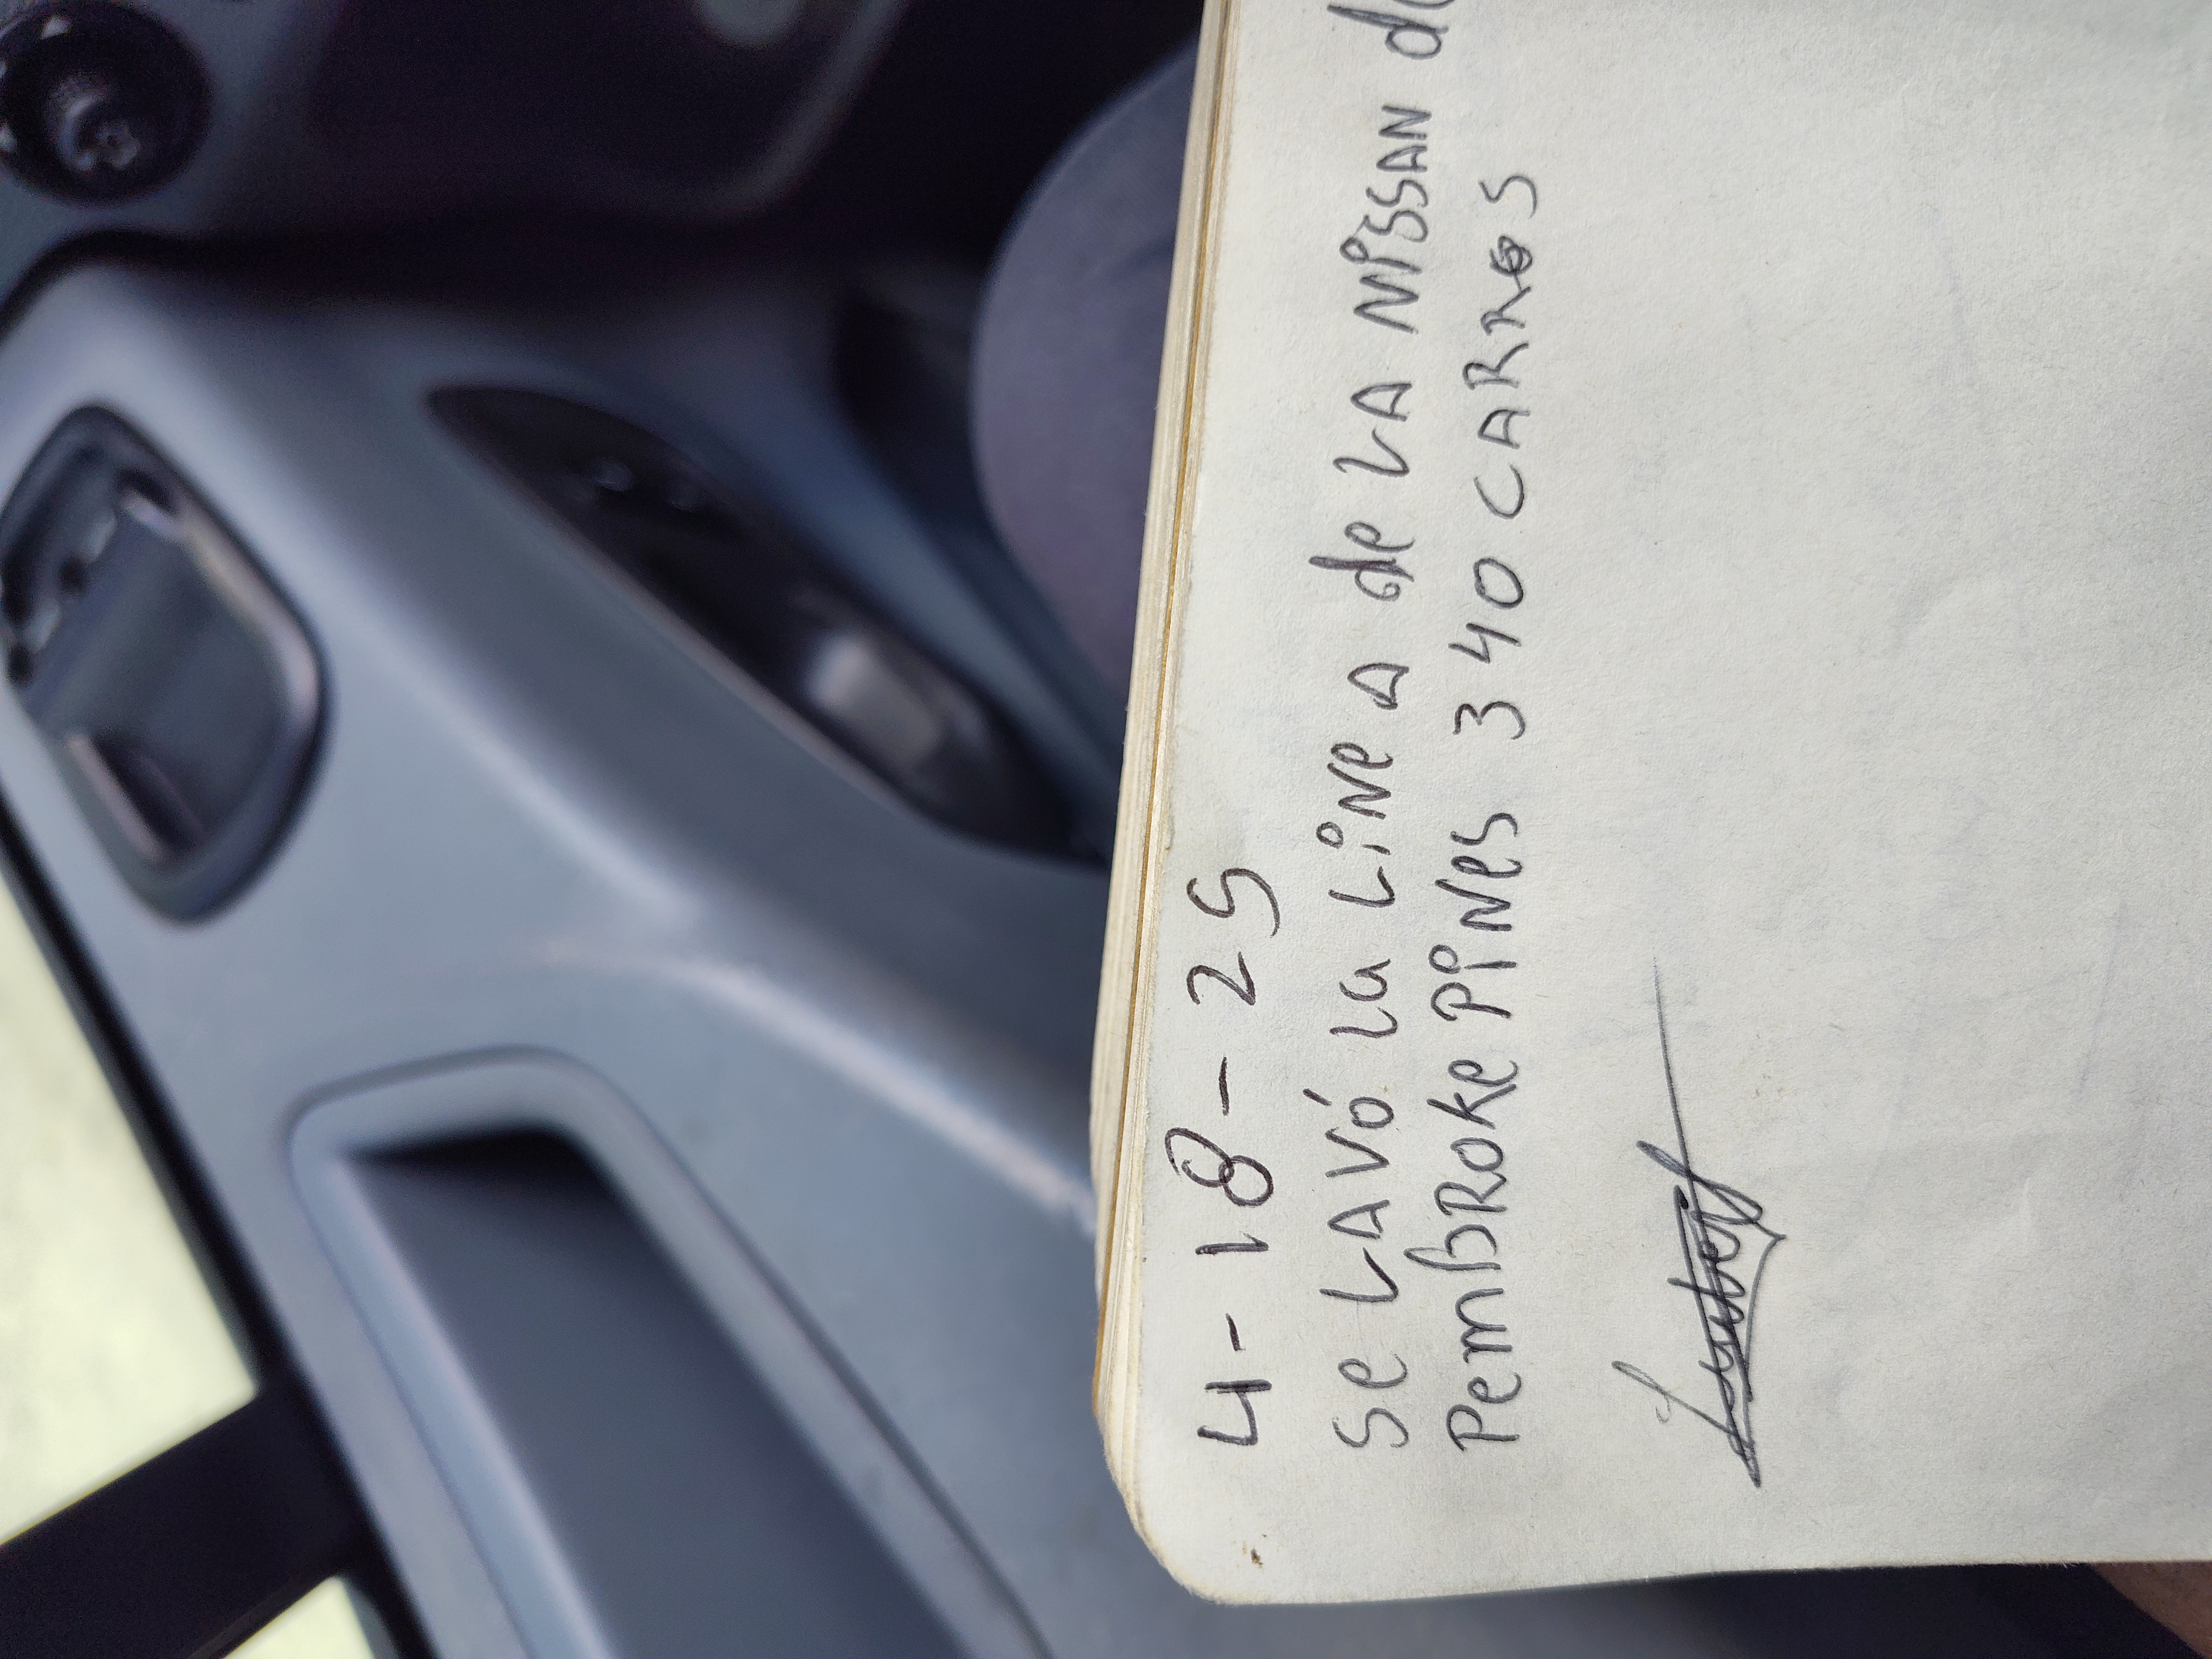 4-18-25
Se LAVó La LiNeA de LA NiSSAN de
PemBRoke PiNeS 340 CARROS